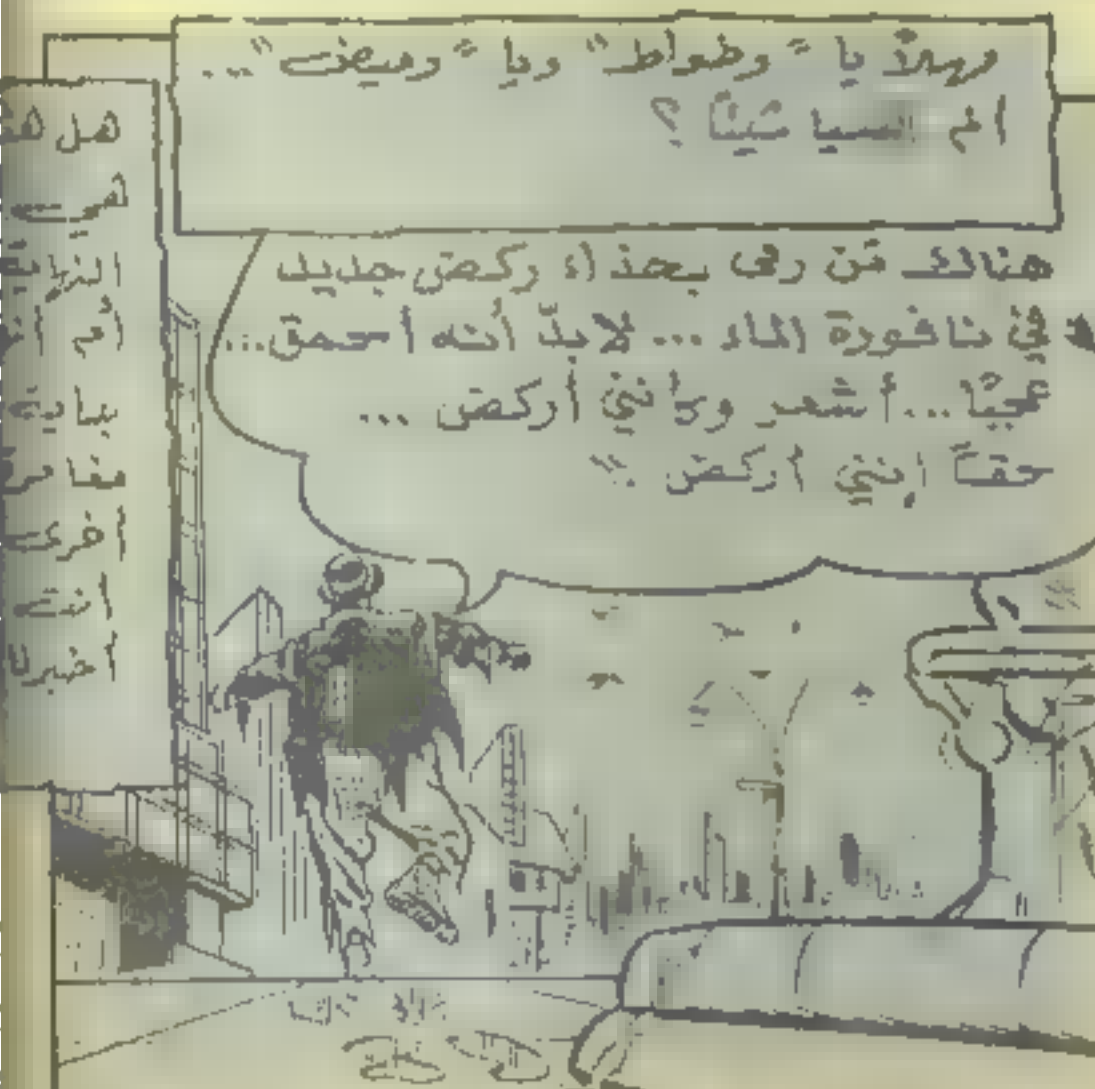 مهلاً يا "وطواط" ويا "وميض"...
ألم تنسيا شيئاً ؟
هنالك مَن رمى بحذاء ركض جديد
في نافورة الماء ... لابدّ أنه أحمق...
عجباً ... أشعر وكأنني أركض ...
حقاً إنني أركض !!
هل هذ
هي
النهاية
أم أن
بداية
مغامرة
أخرى
أنت
أخبرنا